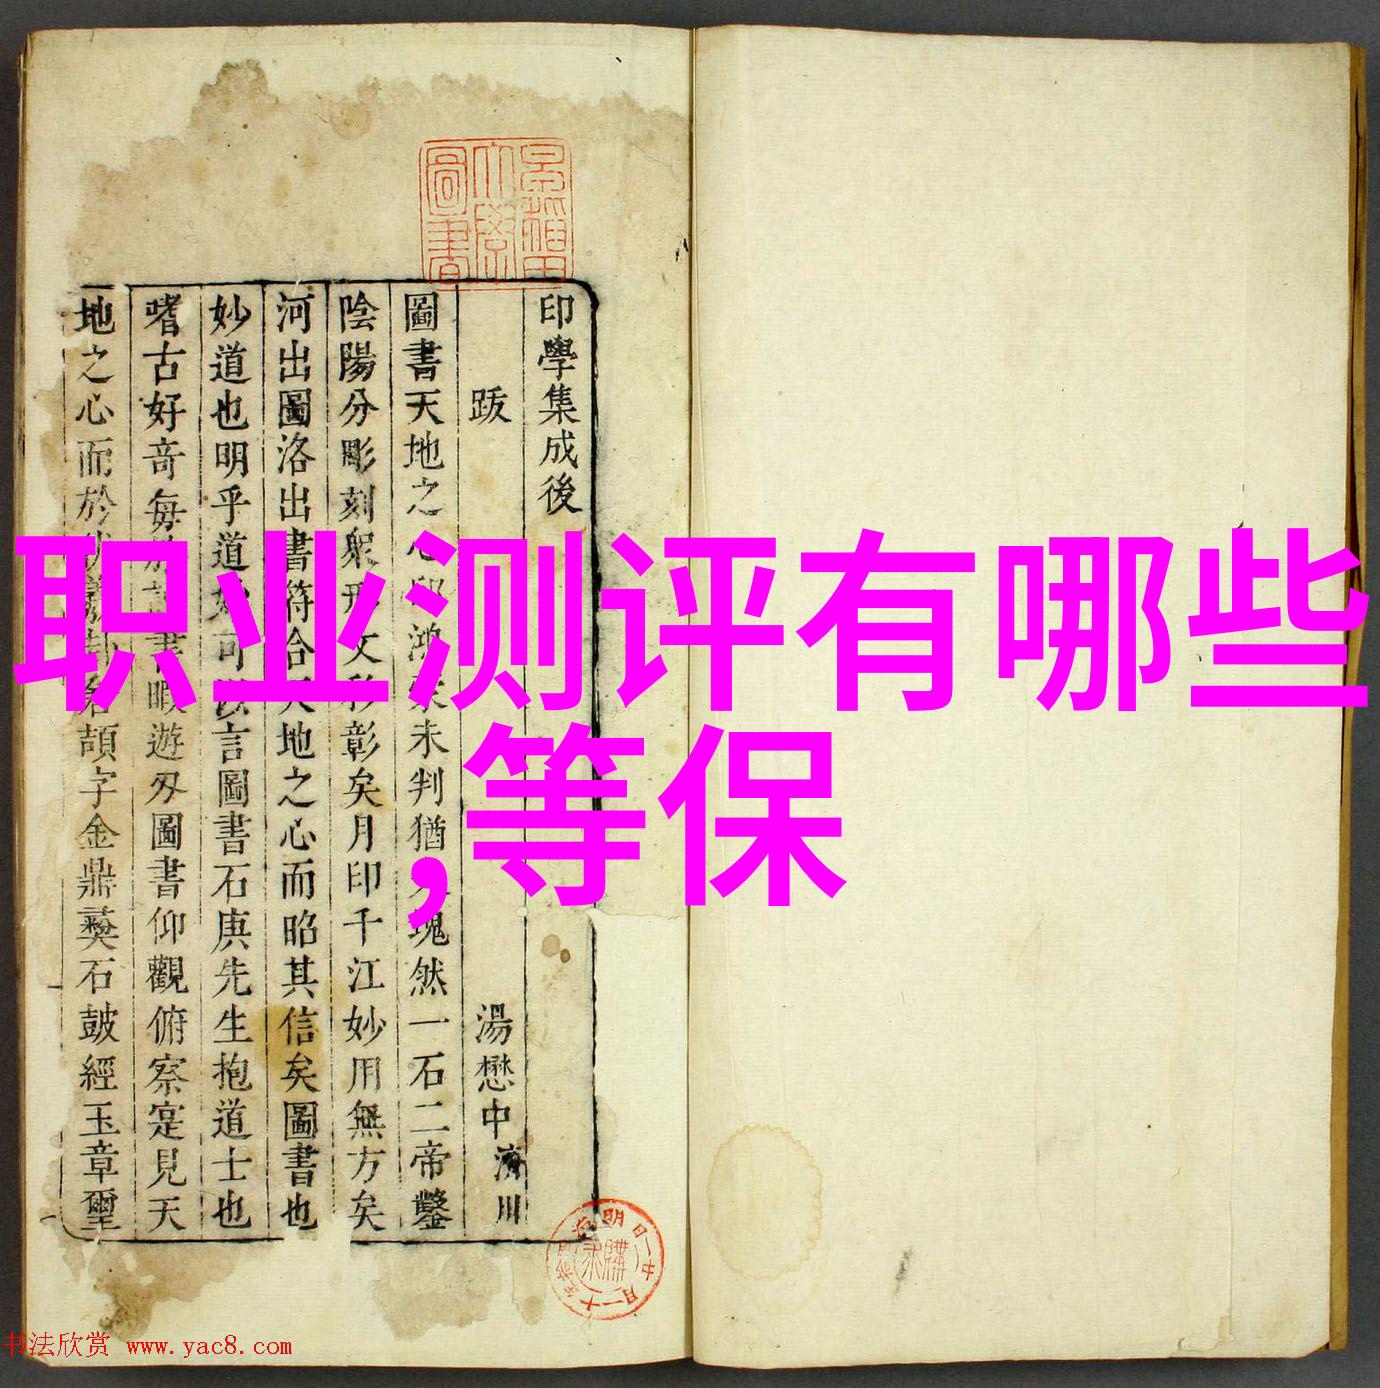 印學集成後
跋 湯懋中 濟川
圖書天地之心 鴻 未判猶 塊然一石二帝鑿
陰陽分彫刻 形文 彰矣月印千江妙用無方矣
河出圖洛出書符合天地之心而昭其信矣圖書也
妙道也明乎道 可 言圖書石庚先生抱道士也
嗜古好竒每 書暇遊 圖書仰觀俯察寔見天
地之心而於 頡字金鼎彝石鼓經玉章璽
职业测评有哪些
,等保
书法欣赏 www.yac8.com